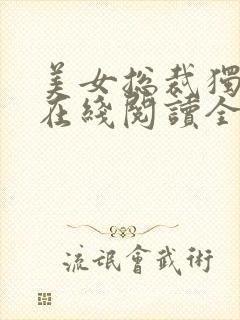 美女総裁獨
在綫閱讀全
流氓會武術